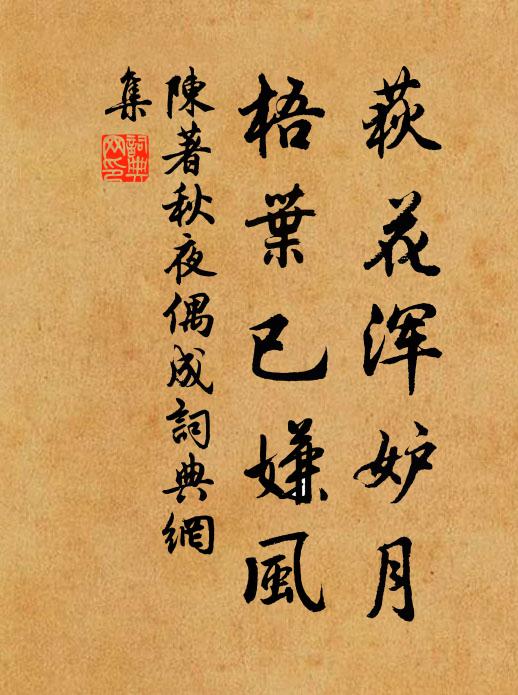 萩花浑妒月
梧葉已嫌風
陳著秋夜偶成詞典網
集
詞典網印